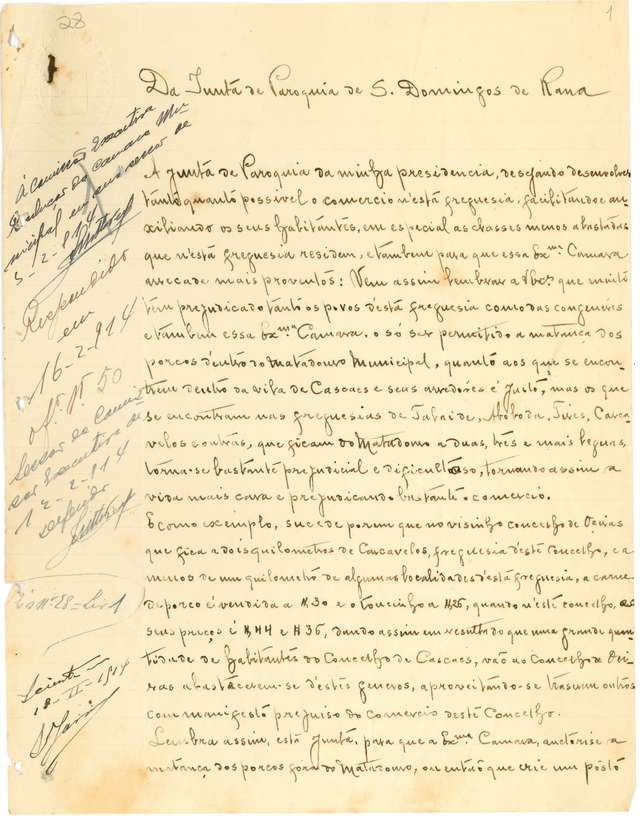 28
1
Da Junta de Paroquia de S. Domingos de Rana
Á Comissão Executiva
da Camara Mu-
nicipal em sessão de
5-2-914
Respondido
em
16-2-914
of.º nº 50
Sessão da Comis-
são Executiva de
12-2-914
Deferido
Nº 28 - Liv 1
Sciente
18-II-1914
A Junta de Paroquia da minha presidencia, desejando desenvolver
tanto quanto possivel o comercio n'esta freguesia, facilitando e au-
xiliando os seus habitantes, em especial as classes menos abastadas
que n'esta freguesia residem, e tambem para que essa Exma Camara
arrecade mais proventos: Vem assim lembrar a Vexcs que muito
tem prejudicado tanto os povos d'esta freguesia como das congeneres
e tambem essa Exma Camara, o só ser permitido a matança dos
porcos dentro do Matadouro Municipal, quanto aos que se encon-
trem dentro da vila de Cascaes e seus arredores é justo, mas os que
se encontram nas freguesias de Talaide, Aboboda, Tires, Carca-
velos e outras, que ficam do Matadouro a duas, tres e mais leguas,
torna-se bastante prejudicial e dificultoso, tornando assim a
vida mais cara e prejudicando bastante o comercio.
E como exemplo, sucede porem que no visinho concelho de Oeiras
que fica a dois quilometros de Carcavelos, freguesia d'este Concelho, e a
menos de um quilometro de algumas localidades d'esta freguesia, a carne
de porco é vendida a $30 e o toucinho a $26, quando n'este concelho, os
seus preços é $44 e $36, dando assim em resultado que uma grande quan-
tidade de habitantes do Concelho de Cascaes, vão ao Concelho de Oei-
ras abastecerem-se d'estes generos, aproveitando-se trazerem outros
com manifesto prejuiso do comercio deste Concelho.
Lembra assim, esta Junta, para que a Exma Camara, auctorise a
matança dos porcos fora do Matadouro, ou então que crie um posto